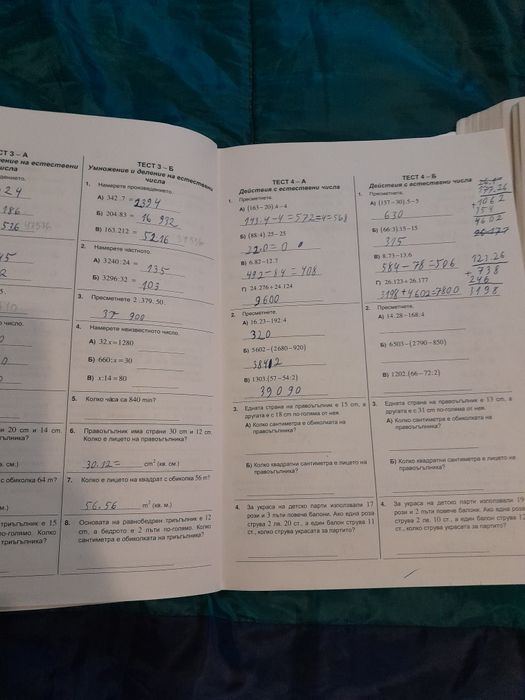 СТ 3 – А
ение на естествени
числа
24
186
ло число.
и 20 cm и 14 cm.
ълника?
кв. см.)
с обиколка 64 m?
м.)
триъгълник е 15
по-голямо. Колко
иъгълника?
ТЕСТ 3 – Б
Умножение и деление на естествени
числа
1. Намерете произведението.
А) 342.7 = 2394
Б) 204.83 = 16 932
В) 163.212 = 5216
2. Намерете частното.
А) 3240:24
135
Б) 3296:32 =
103
3. Пресметнете 2.379.50.
37 900
4. Намерете неизвестното число.
А) 32.x=1280
Б) 660:x=30
В) x:14=80
5. Колко часа са 840 min?
6. Правоъгълник има страни 30 cm и 12 cm.
Колко е лицето на правоъгълника?
30.12= cm² (кв. см.)
7. Колко е лицето на квадрат с обиколка 56 m?
56.56 m² (кв. м.)
8. Основата на равнобедрен триъгълник е 12
cm, а бедрото е 2 пъти по-голямо. Колко
сантиметра е обиколката на триъгълника?
ТЕСТ 4 – А
Действия с естествени числа
1. Пресметнете.
А) (163–20).4–4
143.4–4=572=4=568
Б) (88:4).25–25
220=0
В) 6.82–12.7
492–84=408
Г) 24.276+24.124
9600
2. Пресметнете.
А) 16.23–192:4
320
Б) 5602–(2680–920)
В) 1303.(57–54:2)
39090
3. Едната страна на правоъгълник е 15 cm, а
другата е с 18 cm по-голяма от нея.
А) Колко сантиметра е обиколката на
правоъгълника?
Б) Колко квадратни сантиметра е лицето на
правоъгълника?
4. За украса на детско парти използвали 17
рози и 3 пъти повече балони. Ако една роза
струва 2 лв. 20 ст., а един балон струва 11
ст., колко струва украсата за партито?
ТЕСТ 4 – Б
Действия с естествени числа
1. Пресметнете.
А) (137–30).5–5
630
Б) (66:3).15–15
315
В) 8.73–13.6
584–78=506
Г) 26.123+26.177
3198+4602=7800
177.26
1062
+354
4602
123.26
+738
246
3198
2. Пресметнете.
А) 14.28–168:4
Б) 6503–(2790–850)
В) 1202.(66–72:2)
3. Едната страна на правоъгълник е 13 cm, а
другата е с 31 cm по-голяма от нея.
А) Колко сантиметра е обиколката на
правоъгълника?
Б) Колко квадратни сантиметра е лицето на
правоъгълника?
4. За украса на детско парти използвали 19
рози и 2 пъти повече балони. Ако една роза
струва 2 лв. 10 ст., а един балон струва 12
ст., колко струва украсата за партито?